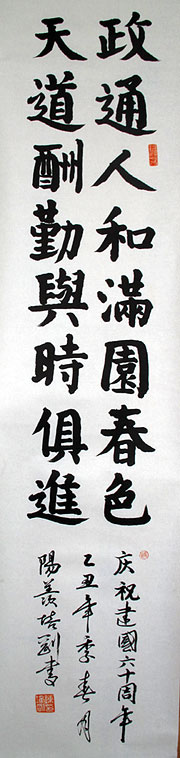 政通人和滿園春色
天道酬勤與時俱進
庆祝建國六十周年
己丑年季春月
陽羨培書